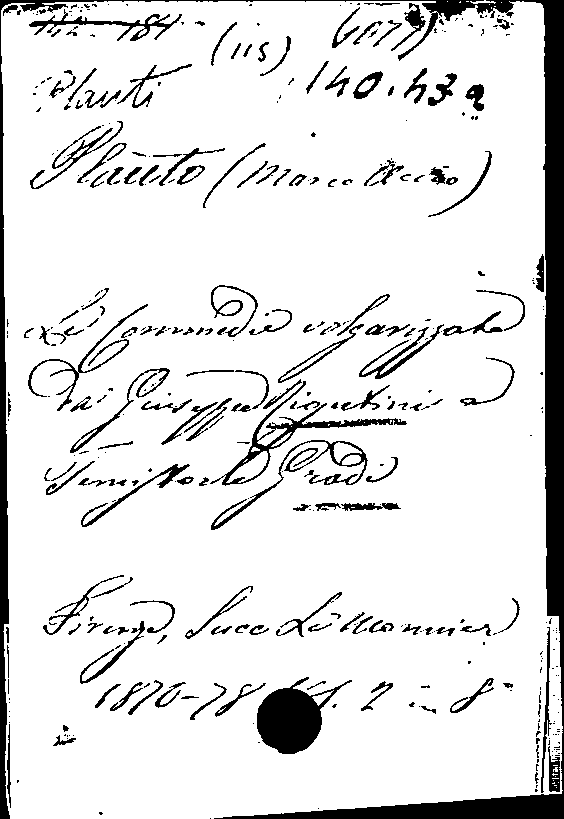 142-184
(115) (1077)
Plauti 140.43 a
Plauto (Marco Accio)
Le Commedie volgarizzate
da Giuseppe Rigutini e
Temistocle Gradi
Firenze, Succ Le Monnier
1870-78 Vol. 2 in 8°